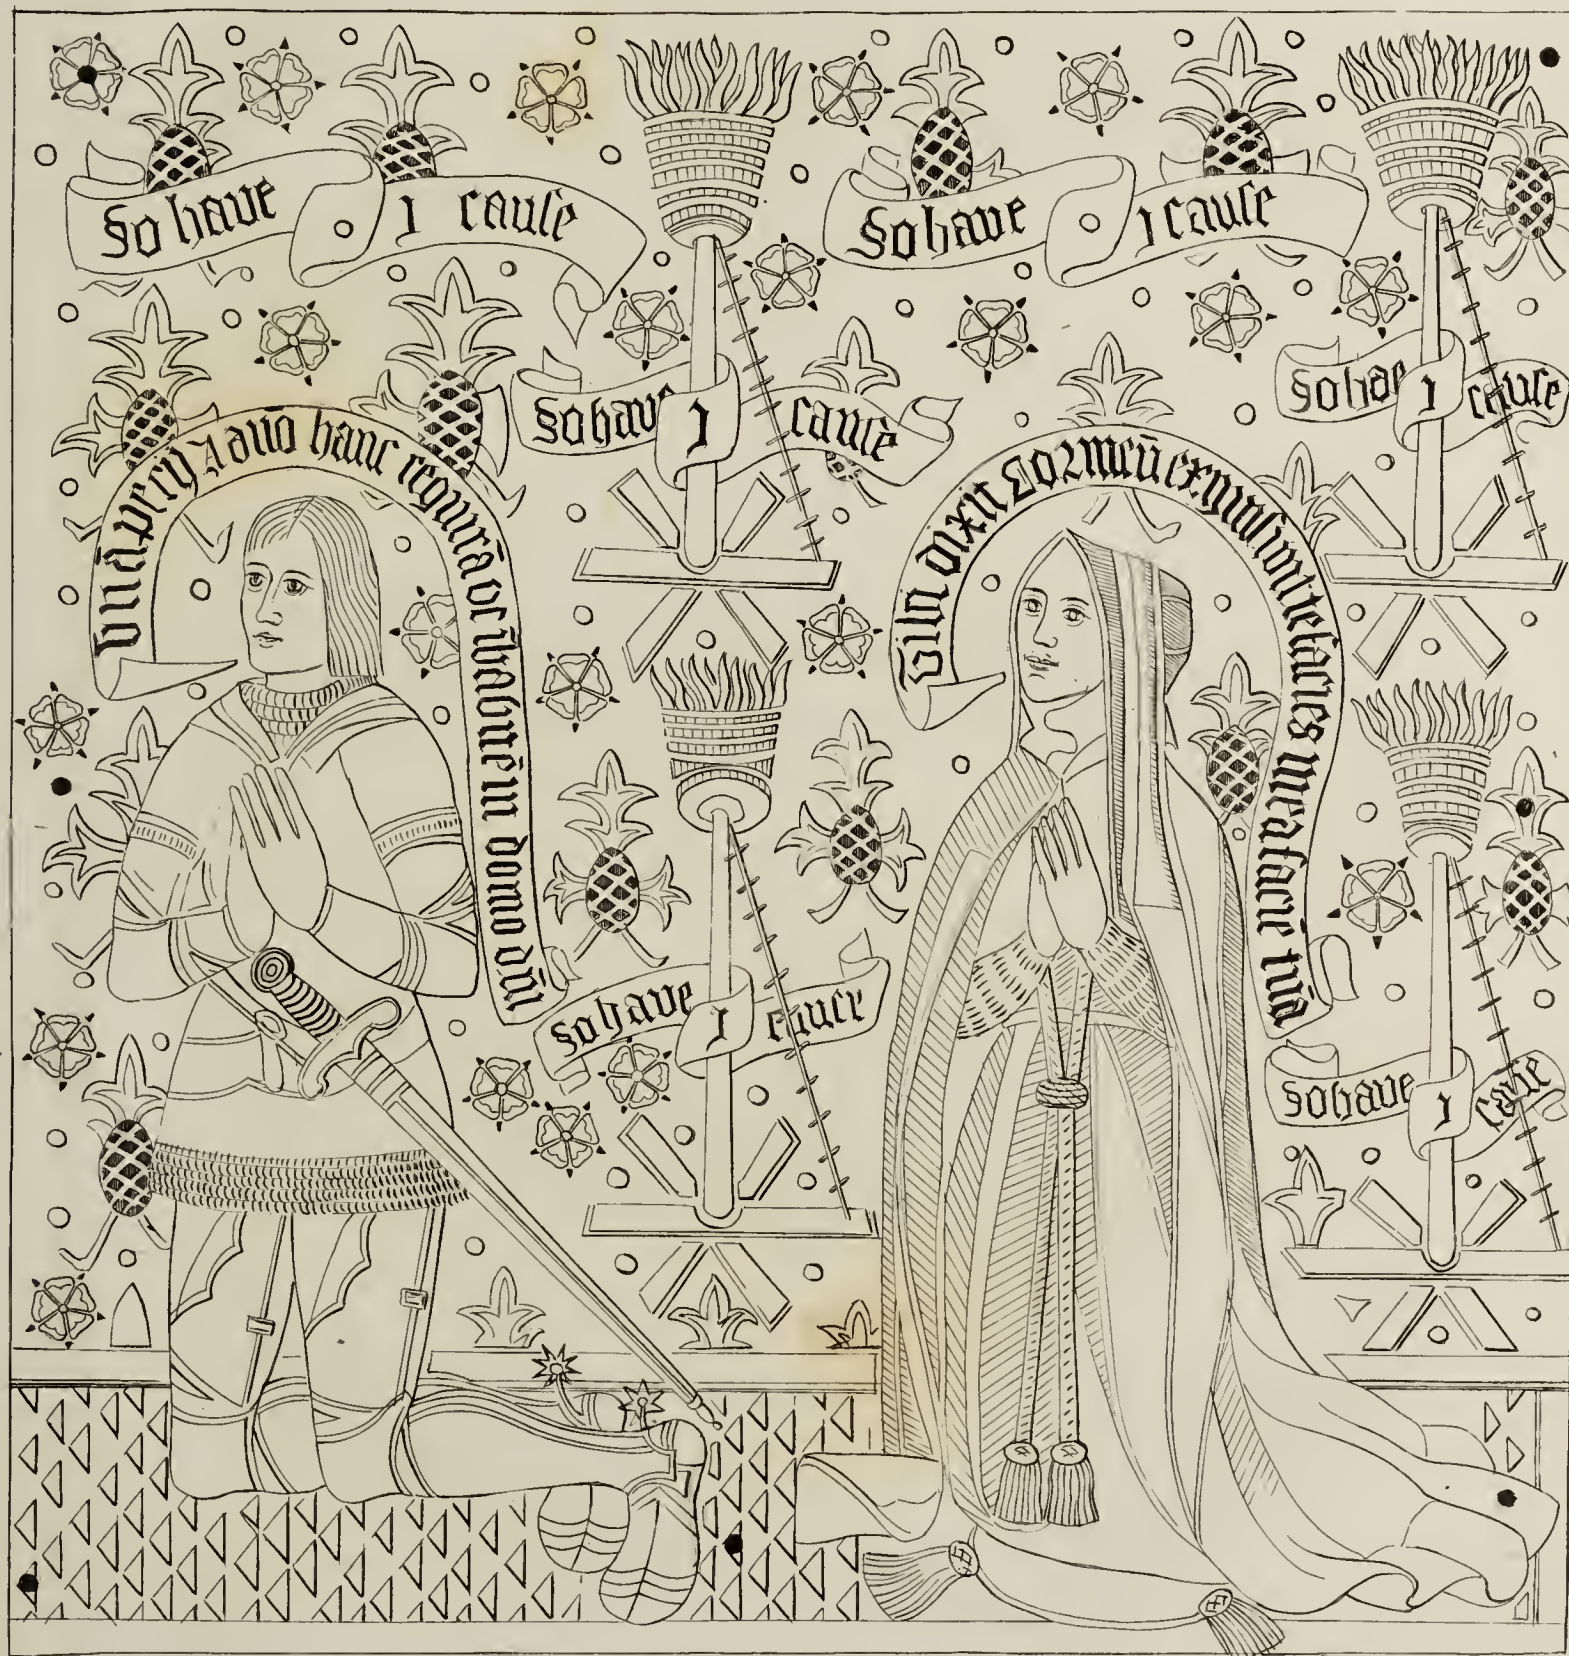 So have I cause
So have I cause
So have I cause
So have I cause
Unā petij A dn̄o hanc requirā vt īhabitē in domo dn̄i
Tibi dixit Cor meū exquisivit te facies mea faciē tuā
So have I cause
So have I cause